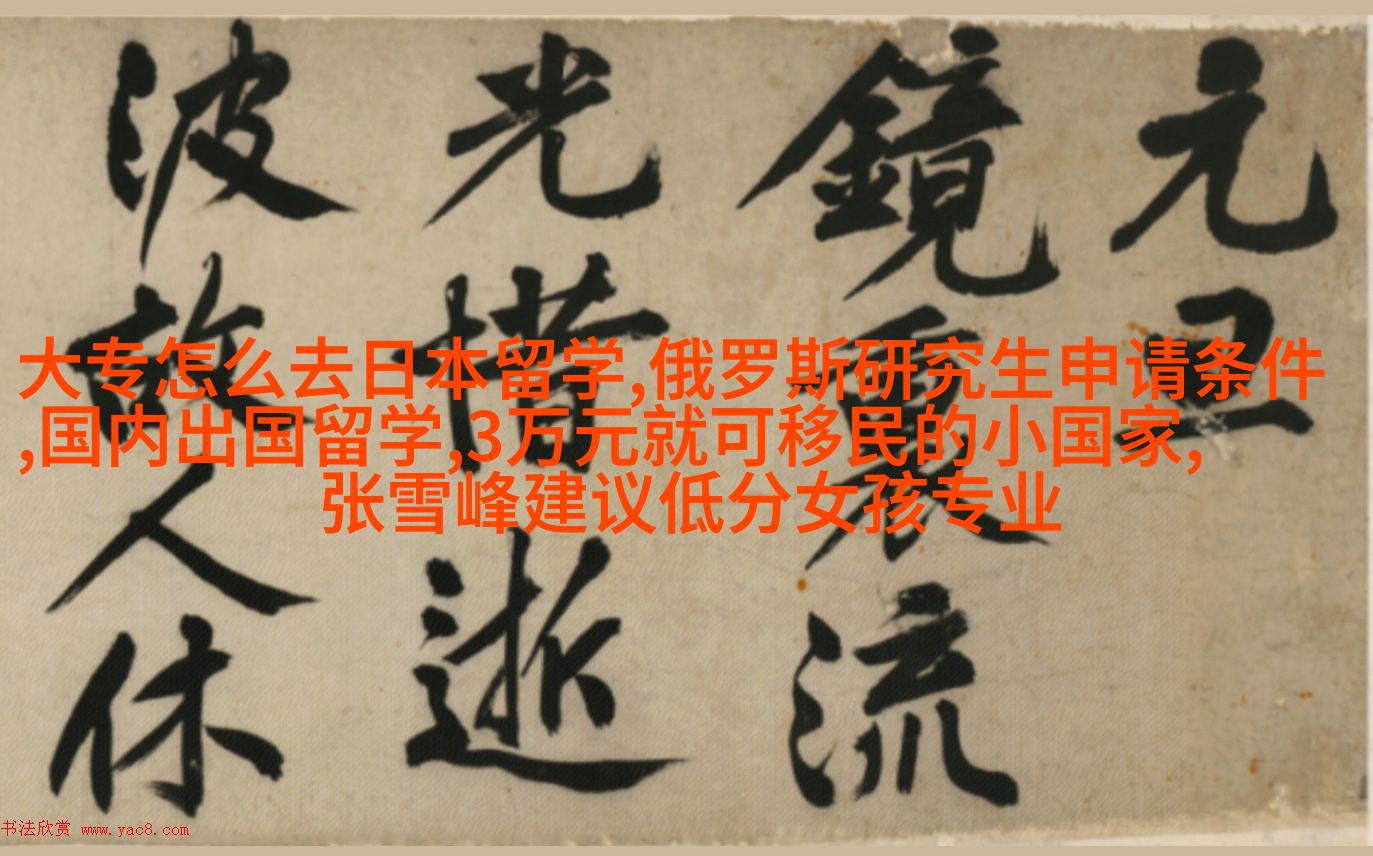 元
鏡裏流
光惜逝
波故人休
大专怎么去日本留学,俄罗斯研究生申请条件
,国内出国留学,3万元就可移民的小国家,
张雪峰建议低分女孩专业
书法欣赏 www.yac8.com